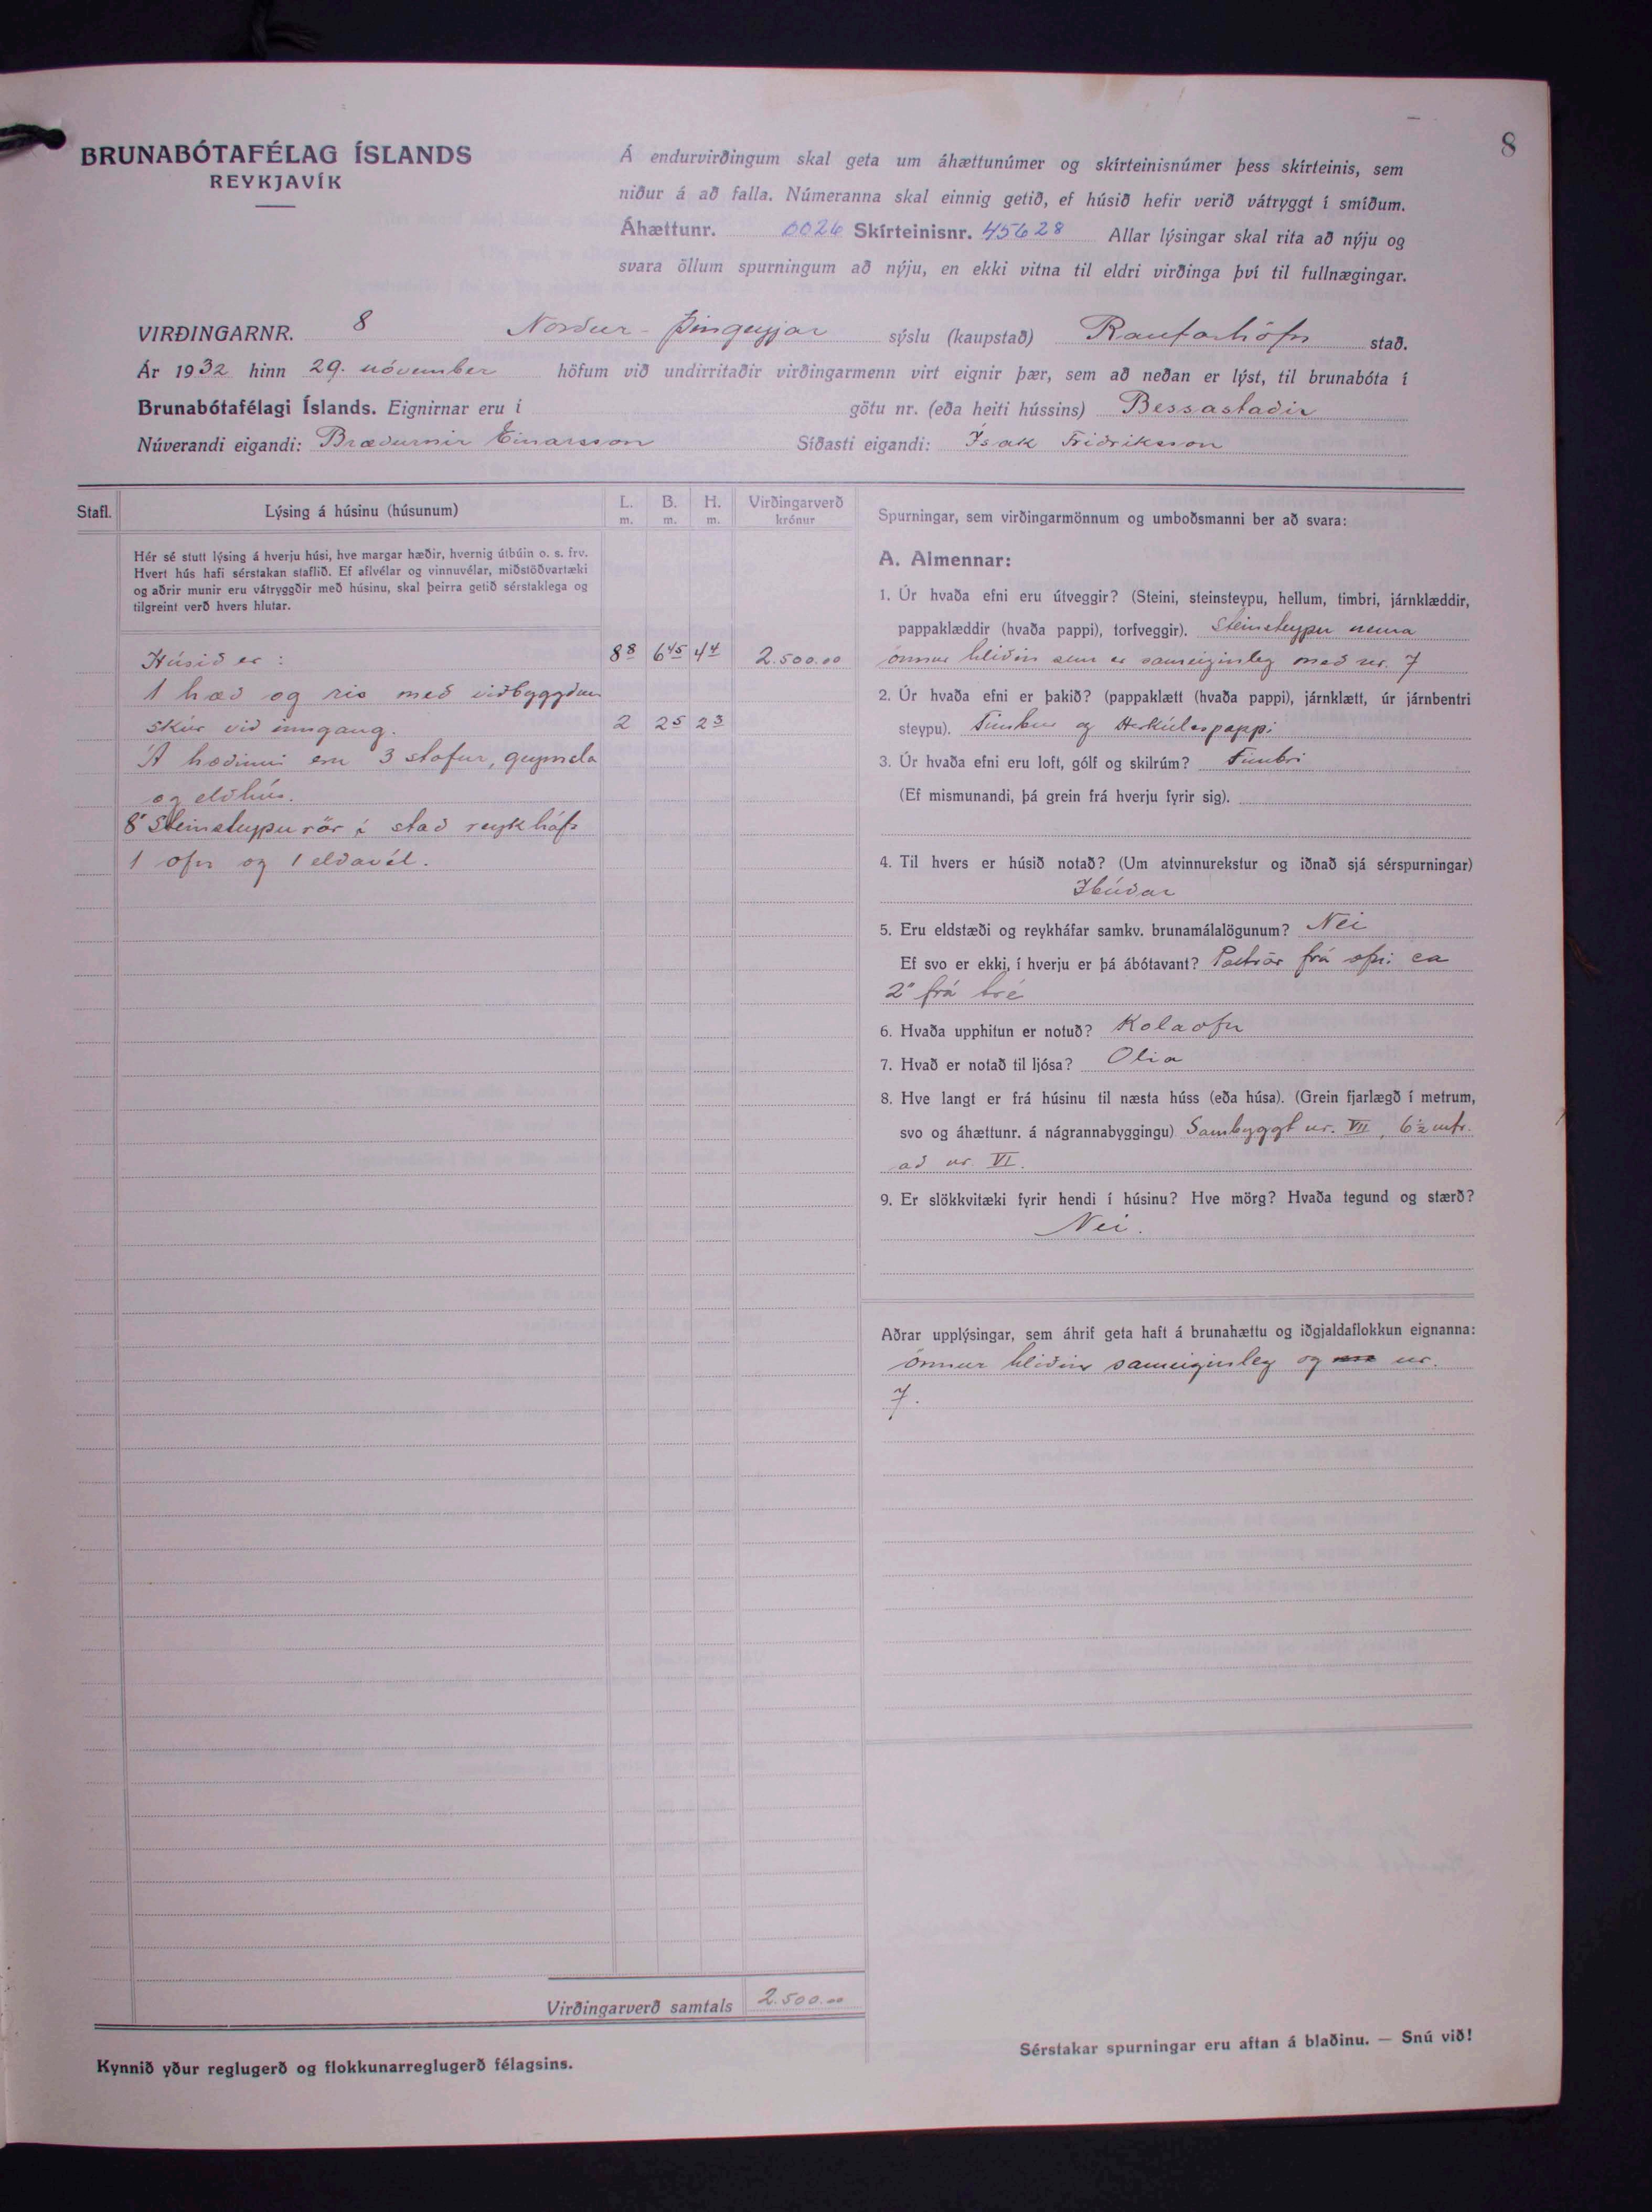 8
BRUNABÓTAFÉLAG ÍSLANDS
REYKJAVÍK
Á endurvirðingum skal geta um áhættunúmer og skírteinisnúmer þess skírteinis, sem
niður á að falla. Númeranna skal einnig getið, ef húsið hefir verið vátryggt í smíðum.
Áhættunr. 0026 Skírteinisnr. 45628 Allar lýsingar skal rita að nýju og
svara öllum spurningum að nýju, en ekki vitna til eldri virðinga því til fullnægingar.
VIRÐINGARNR. 8 Norður-Þingeyjar sýslu (kaupstað) Raufarhöfn stað.
Ár 1932 hinn 29. nóvember höfum við undirritaðir virðingarmenn virt eignir þær, sem að neðan er lýst, til brunabóta í
Brunabótafélagi Íslands. Eignirnar eru í götu nr. (eða heiti hússins) Bessastaðir
Núverandi eigandi: Bræðurnir Einarsson Síðasti eigandi: Ísak Friðriksson
Stafl. Lýsing á húsinu (húsunum) L. m. B. m. H. m. Virðingarverð krónur
Hér sé stutt lýsing á hverju húsi, hve margar hæðir, hvernig útbúin o. s. frv.
Hvert hús hafi sérstakan staflið. Ef aflvélar og vinnuvélar, miðstöðvartæki
og aðrir munir eru vátryggðir með húsinu, skal þeirra getið sérstaklega og
tilgreint verð hvers hlutar.
Húsið er: 8 8 6 45 4 4 2.500.00
1 hæð og ris með viðbyggðum
skúr við inngang. 2 2 5 2 3
Á hæðinni eru 3 stofur, geymsla
og eldhús.
8" Steinsteypurör í stað reykháfs
1 ofn og 1 eldavél.
Virðingarverð samtals 2.500.00
Kynnið yður reglugerð og flokkunarreglugerð félagsins.
Spurningar, sem virðingarmönnum og umboðsmanni ber að svara:
A. Almennar:
1. Úr hvaða efni eru útveggir? (Steini, steinsteypu, hellum, timbri, járnklæddir,
pappaklæddir (hvaða pappi), torfveggir). Steinsteypu nema
önnur hliðin sem er sameiginleg með nr. 7
2. Úr hvaða efni er þakið? (pappaklætt (hvaða pappi), járnklætt, úr járnbentri
steypu). Timbur og Herkúlespappi
3. Úr hvaða efni eru loft, gólf og skilrúm? Timbri
(Ef mismunandi, þá grein frá hverju fyrir sig).
4. Til hvers er húsið notað? (Um atvinnurekstur og iðnað sjá sérspurningar)
Íbúðar
5. Eru eldstæði og reykháfar samkv. brunamálalögunum? Nei
Ef svo er ekki, í hverju er þá ábótavant? Pottrör frá ofni ca
2" frá tré
6. Hvaða upphitun er notuð? Kolaofn
7. Hvað er notað til ljósa? Olia
8. Hve langt er frá húsinu til næsta húss (eða húsa). (Grein fjarlægð í metrum,
svo og áhættunr. á nágrannabyggingu) Sambyggt nr. VII, 6 ½ mtr.
að nr. VI.
9. Er slökkvitæki fyrir hendi í húsinu? Hve mörg? Hvaða tegund og stærð?
Nei.
Aðrar upplýsingar, sem áhrif geta haft á brunahættu og iðgjaldaflokkun eignanna:
önnur hliðin sameiginleg og nr.
7.
Sérstakar spurningar eru aftan á blaðinu. — Snú við!